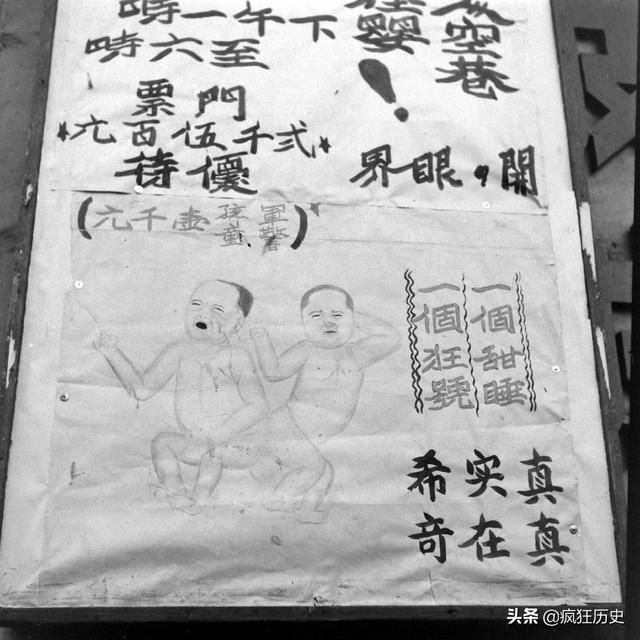 空巷
狂嬰！
開•眼界
下午一時
至六時
門票
★弍千伍百元★
優待
(軍警孩童壹千元)
一個甜睡
一個狂號
真真
实在
希奇
头条 @疯狂历史